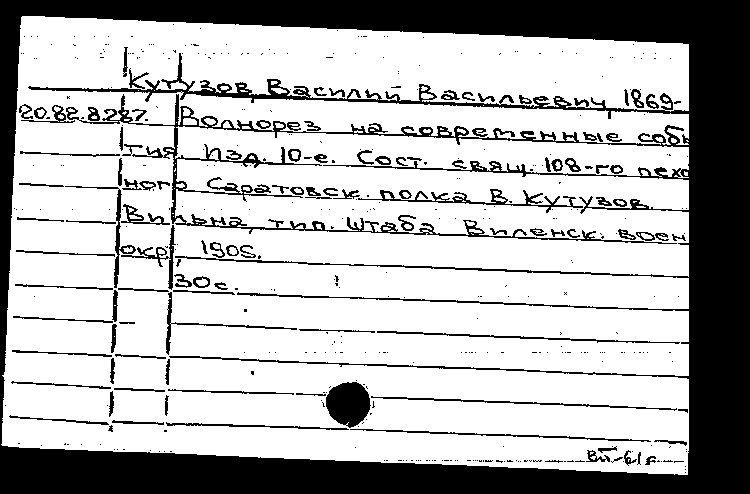 Кутузов, Василий Васильевич, 1869-
20.82.8287. Волнорез на современные собы
тия. Изд. 10-е. Сост. свящ. 108-го пехо
ного Саратовск. полка В. Кутузов.
Вильна, тип. Штаба Виленск. воен
окр., 1906.
30 с.